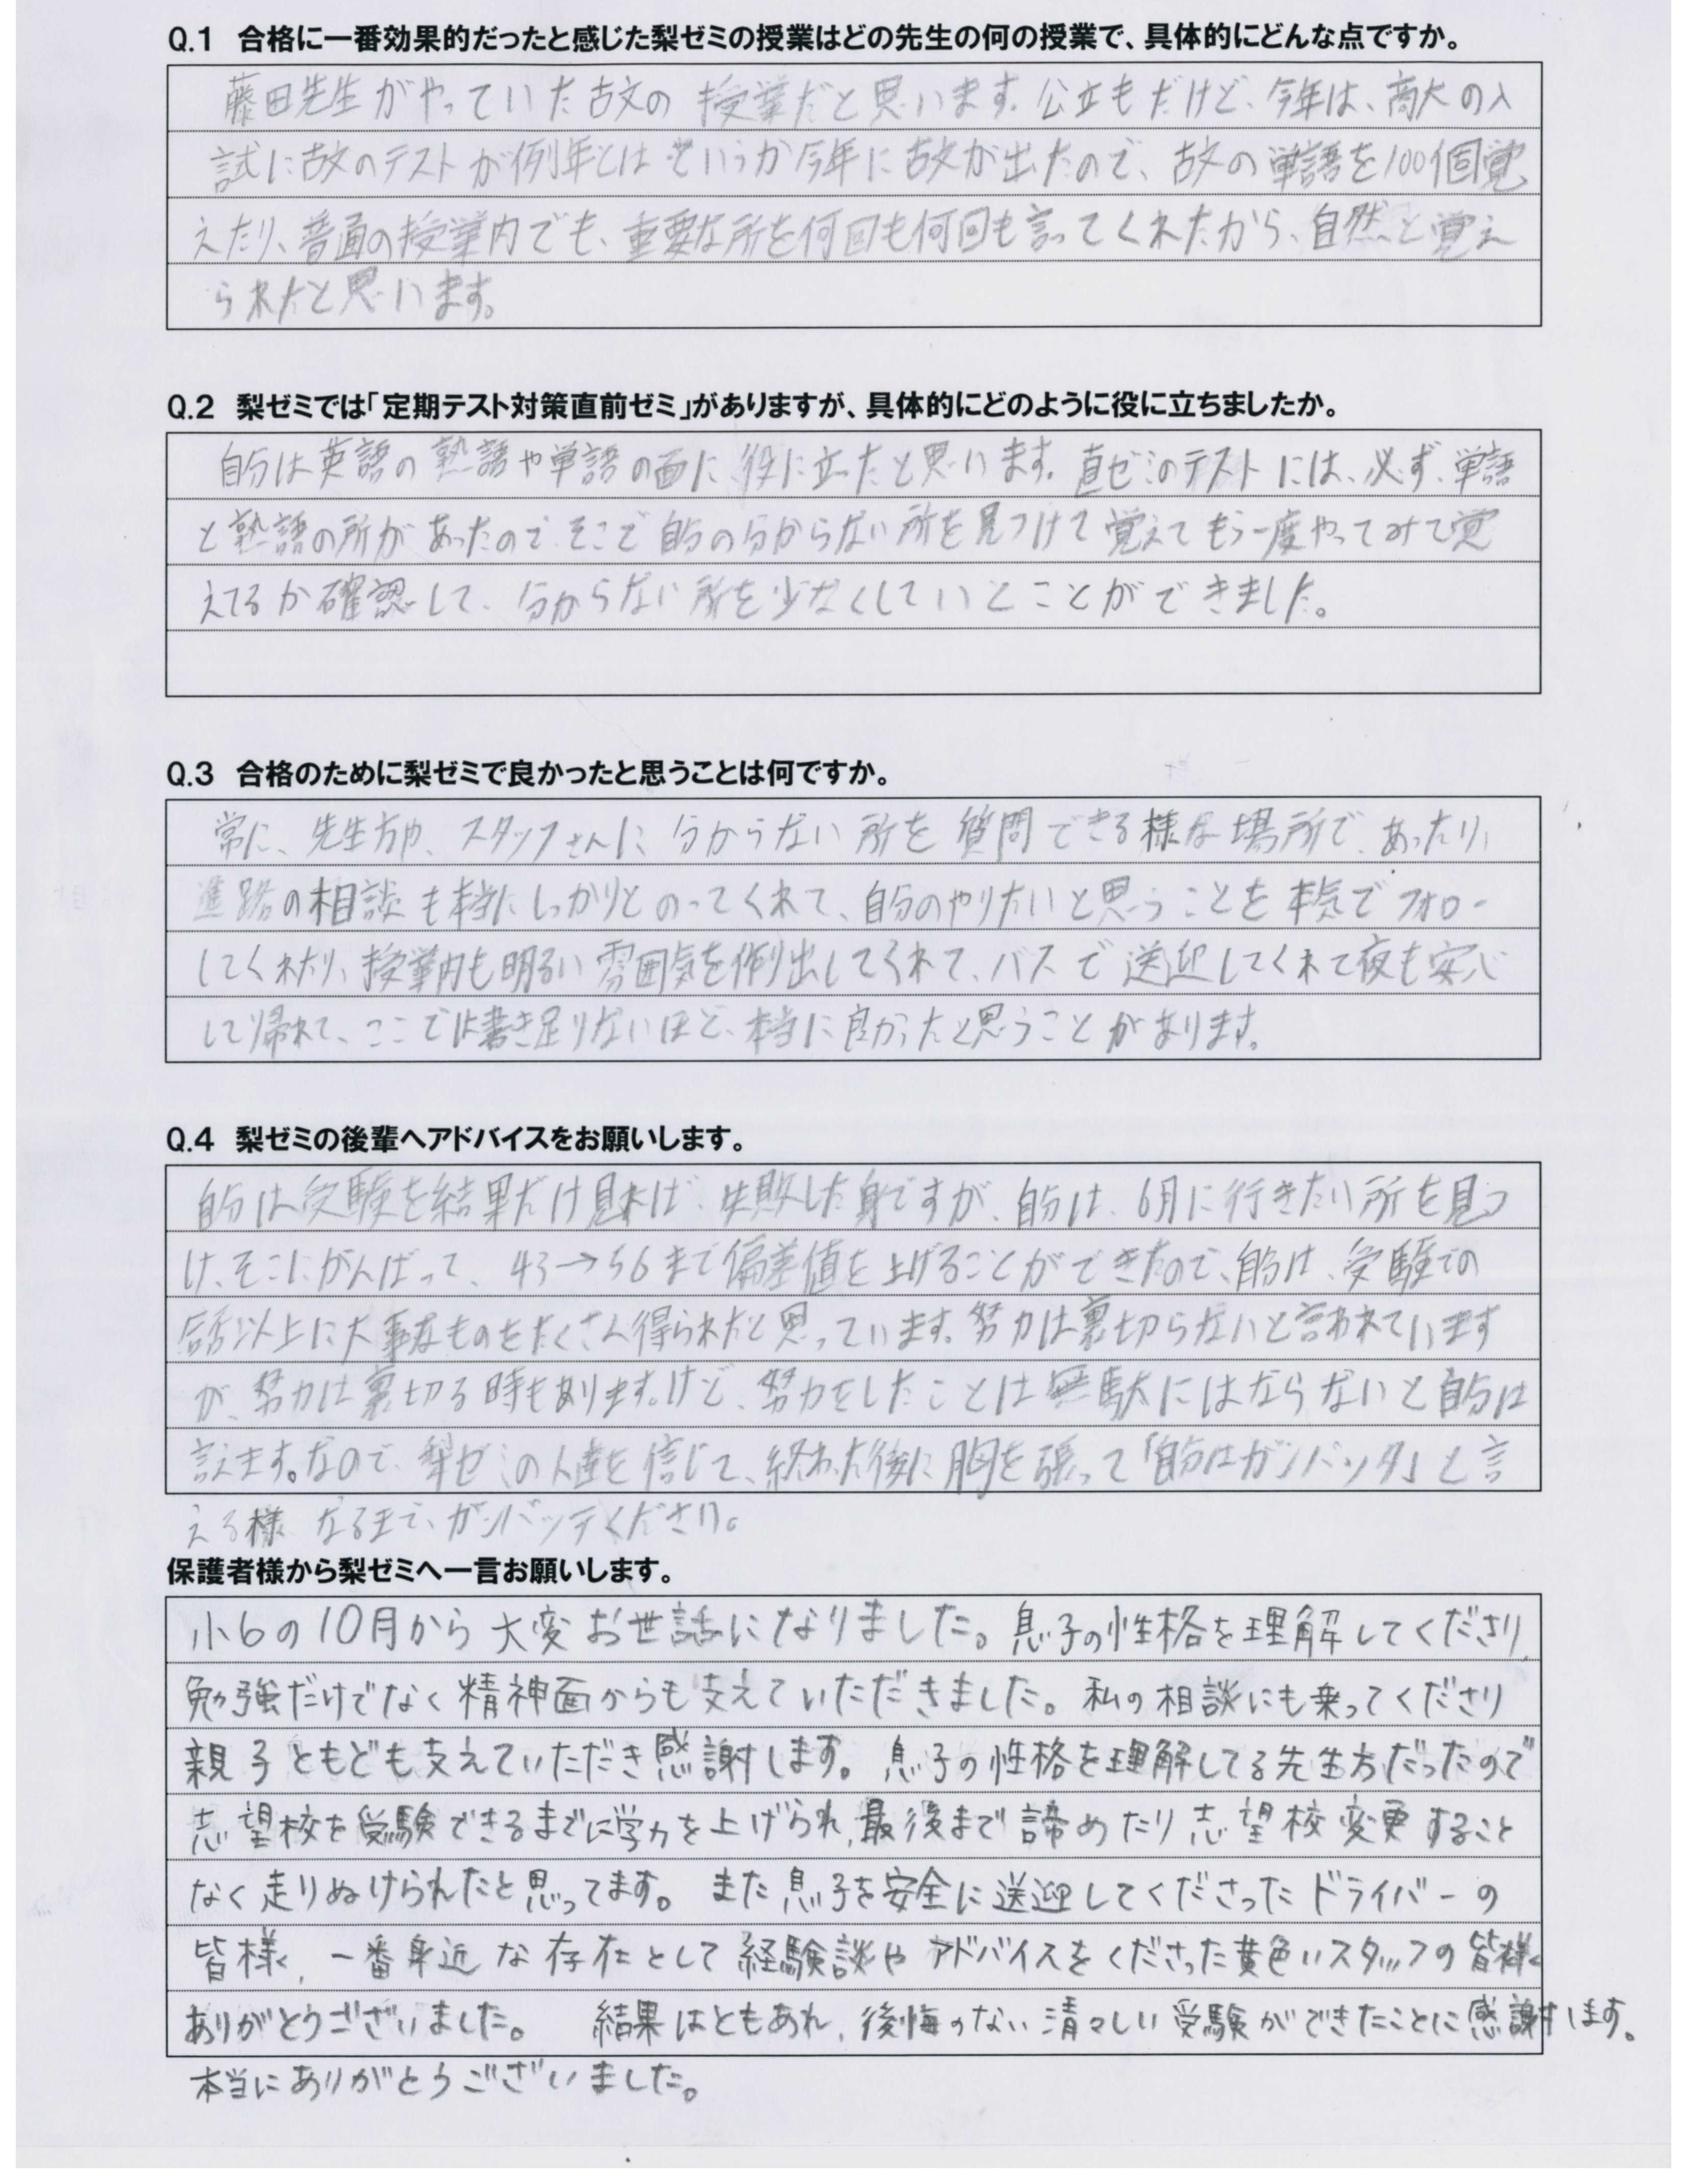 Q.1 合格に一番効果的だったと感じた梨ゼミの授業はどの先生の何の授業で、具体的にどんな点ですか。
藤田先生がやっていた古文の授業だと思います。公立もだけど、今年は、商大の入
試に古文のテストが例年とはというか今年に古文が出たので、古文の単語を100個覚
えたり、普通の授業内でも、重要な所を何回も何回も言ってくれたから、自然と覚え
られたと思います。
Q.2 梨ゼミでは「定期テスト対策直前ゼミ」がありますが、具体的にどのように役に立ちましたか。
自分は英語の熟語や単語の面に役に立ったと思います。直ゼミのテストには、必ず、単語
と熟語の所があったので、そこで自分の分からない所を見つけて覚えてもう一度やってみて覚
えてるか確認して、分からない所を少なくしていくことができました。
Q.3 合格のために梨ゼミで良かったと思うことは何ですか。
常に、先生方や、スタッフさんに分からない所を質問できる様な場所で、あったり、
進路の相談も本当にしっかりとのってくれて、自分のやりたいと思うことを本気でフォロー
してくれたり、授業内も明るい雰囲気を作り出してくれて、バスで送迎してくれて夜も安心
して帰れて、ここでは書き足りないほど、本当に良かったと思うことがあります。
Q.4 梨ゼミの後輩へアドバイスをお願いします。
自分は受験を結果だけ見れば、失敗した身ですが、自分は、6月に行きたい所を見つ
け、そこにがんばって、43→56まで偏差値を上げることができたので、自分は、受験での
以上に大事なものをたくさん得られたと思っています。努力は裏切らないと言われています
が、努力は裏切る時もあります。けど、努力をしたことは無駄にはならないと自分は
言えます。なので、梨ゼミの人達を信じて、終わった後に胸を張って「自分はガンバッタ」と言
える様なるまで、ガンバッテください。
保護者様から梨ゼミへ一言お願いします。
小6の10月から大変お世話になりました。息子の性格を理解してくださり、
勉強だけでなく精神面からも支えていただきました。私の相談にも乗ってくださり
親子ともども支えていただき感謝します。息子の性格を理解してる先生方だったので
志望校を受験できるまでに学力を上げられ、最後まで諦めたり志望校変更すること
なく走りぬけられたと思ってます。また息子を安全に送迎してくださったドライバーの
皆様、一番身近な存在として経験談やアドバイスをくださった黄色いスタッフの皆様
ありがとうございました。 結果はともあれ、後悔のない清々しい受験ができたことに感謝します。
本当にありがとうございました。